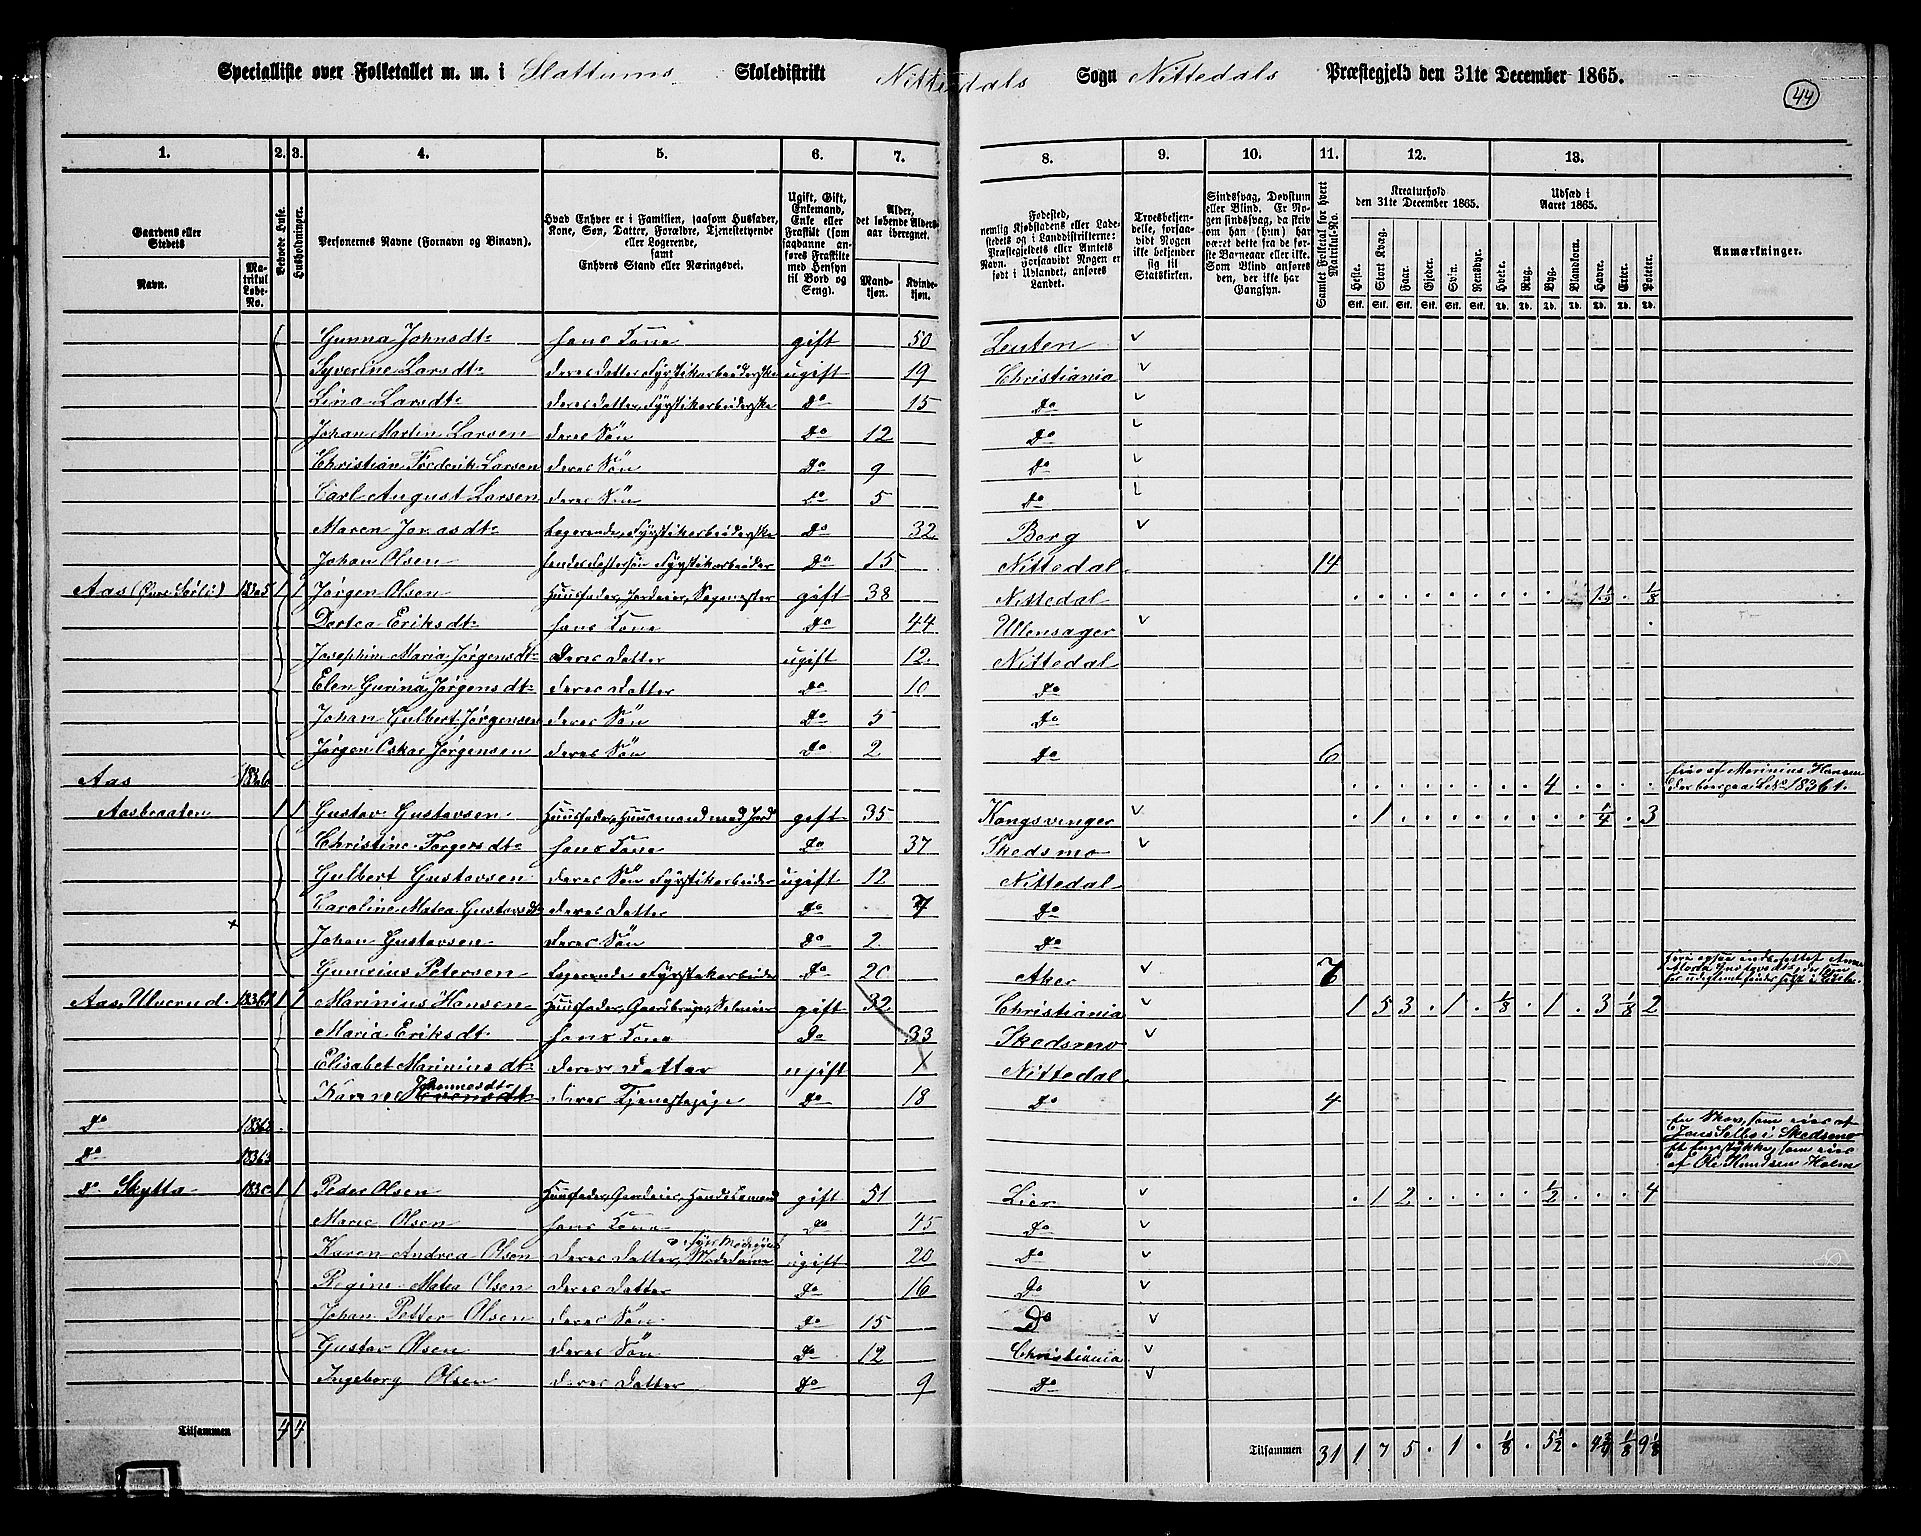 Specialliste over Folketallet m. m. i Slattums Skoledistrikt Nittedals Sogn Nittedals Præstegjeld den 31te December 1865.
44
1. 2. 3. 4. 5. 6. 7. 8. 9. 10. 11. 12. 13.
Gaardens eller Stedets
Navn.
Matrikul Løbe-No.
Beboede Huse.
Husholdninger.
Personernes Navne (Fornavn og Binavn).
Hvad Enhver er i Familien, saasom Husfader, Kone, Søn, Datter, Forældre, Tjenestetyende eller Logerende, samt Enhvers Stand eller Næringsvei.
Ugift, Gift, Enkemand, Enke eller Fraskilt (som saadanne anføres Fraskilte med Hensyn til Bord og Seng).
Alder, det løbende Alders-aar iberegnet.
Mand-kjøn.
Kvinde-kjøn.
Fødested, nemlig Kjøbstadens eller Ladestedets og i Landdistrikterne: Præstegjeldets eller Amtets Navn. Forsaavidt Nogen er født i Udlandet, anføres Landet.
Troesbekjendelse, forsaavidt Nogen ikke bekjender sig til Statskirken.
Sindssvag, Døvstum eller Blind. Er Nogen sindssvag, da skrives om han (hun) har været dette fra de første Barneaar eller ikke. Som Blind ansøres den, der ikke har Gangsyn.
Samlet Folketal for hvert Matrikul-No.
Kreaturhold den 31te December 1865.
Heste. Stort Kvæg. Faar. Gjeder. Svin. Rensdyr.
Udsæd i Aaret 1865.
Hvede. Rug. Byg. Blandkorn. Havre. Erter. Poteter.
Stk. Stk. Stk. Stk. Stk. Stk. Td. Td. Td. Td. Td. Td. Td.
Anmærkninger.
Gunna Johnsdtr hans Kone gift 50 Leuten
Syverine Larsdtr deres Datter, Fyrstikarbeiderske ugift 19 Christiania
Lina Larsdtr deres Datter, Fyrstikarbeiderske Do 15 Do
Johan Martin Larsen deres Søn Do 12 Do
Christian Frederik Larsen deres Søn Do 9 Do
Carl August Larsen deres Søn Do 5 Do
Maren Jonasdtr Logerende, Fyrstikarbeiderske Do 32 Berg
Johan Olsen Fyrstikarbeider Do 15 Nittedal 14
Aas 1 1 Jørgen Olsen Huusfader, Jordeier, Sagmester gift 38 Nittedal 1/8
Dortea Eriksdtr hans Kone Do 44 Ullensager
Josephine Maria Jørgensdtr deres Datter ugift 12 Nittedal
Elen Gurina Jørgensdtr deres Datter Do 10 Do
Johan Gulbert Jørgensen deres Søn Do 5 Do
Jørgen Oskar Jørgensen deres Søn Do 2 Do 6
Aas 4 eies af Marinius Hansen
Aasbraaten 1 1 Gustav Gustavsen Huusfader, Huusmand med Jord gift 35 Kongsvinger 1 1/4 3
Christine Torgersdtr hans Kone Do 37 Skedsmo
Gulbert Gustavsen deres Søn Fyrstikarbeider ugift 12 Nittedal
Caroline Matea Gustavsdtr deres Datter Do 7 Do
Johan Gustavsen deres Søn Do 2 Do
Petersen Logerende Fyrstikarbeider Do 20 Aker
Aas, Ulverud 1 1 Marinius Hansen gift 32 Christiania 1 5 3 1 1/8 1 3 1/8 2
Maria Eriksdtr hans Kone Do 33 Skedsmo
Elisabet Mariniusdtr deres Datter ugift 1 Nittedal
Karen Johannesdtr deres Tjenestepige Do 18 Do 4
Do En Skov, som eies af Jens Selbo i Skedsmo
Do Et Engestykke, som eies af Ole Knudsen Holm
Do Skytta 1 1 Peder Olsen Huusfader, Gaardeier, Handelsmand gift 51 Lier 1 2 1/2 4
Marie Olsen hans Kone Do 45 Do
Karen Andrea Olsen deres Datter, ugift 20 Do
Regine Matea Olsen deres Datter Do 16 Do
Johan Petter Olsen deres Søn Do 15 Do
Gustav Olsen deres Søn Do 12 Christiania
Ingeborg Olsen deres Datter Do 9 Do
Tilsammen 4 4 Tilsammen 31 1 7 5 1 1/8 5 1/2 4 3/4 1/8 9 1/8